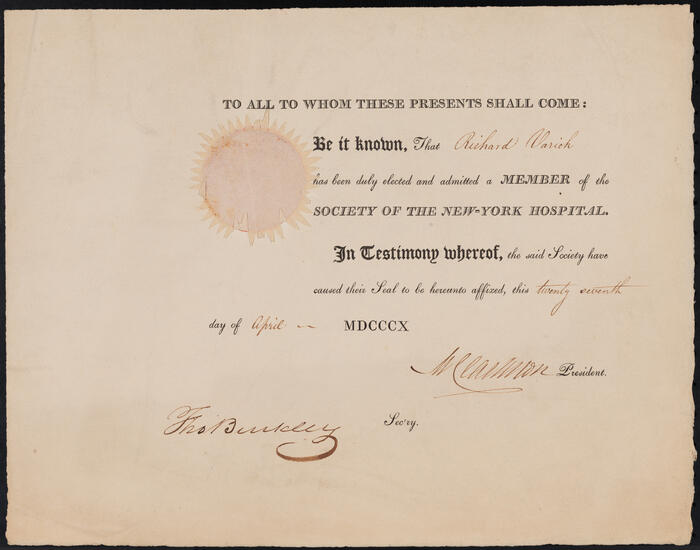 TO ALL TO WHOM THESE PRESENTS SHALL COME:
Be it known, That Richard Varick
has been duly elected and admitted a MEMBER of the
SOCIETY OF THE NEW-YORK HOSPITAL.
In Testimony whereof, the said Society have
caused their Seal to be hereunto affixed, this twenty seventh
day of April MDCCCX
President.
Tho Buckley
Sec'ry.